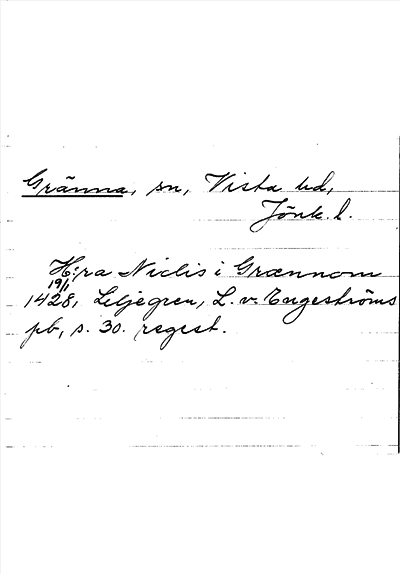 Gränna, sn, Vista hd,
Jönk. l.
H:ra Niclis i Grænnom
19/1
1428, Liljegren, L. v. Engeströms
pb, s. 30. regest.